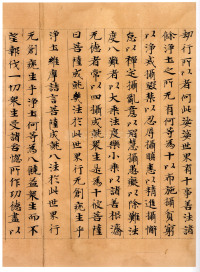 劫行所以者何此娑婆世界有十事善法諸
餘淨土之所无有何等為十以布施攝貧窮
以淨戒攝毀禁以忍辱攝瞋恚以精進攝懈
怠以禪定攝亂意以智慧攝愚癡說除難法
度八難者以大乘法度樂小乘者以諸善根濟
无德者常以四攝成就眾生是為十彼菩薩
曰菩薩成就幾法於此世界行无瘡疣生于
淨土維摩詰言菩薩成就八法於此世界行
无瘡疣生于淨土何等為八饒益眾生而不
望報代一切眾生受諸苦惱所作功德盡以